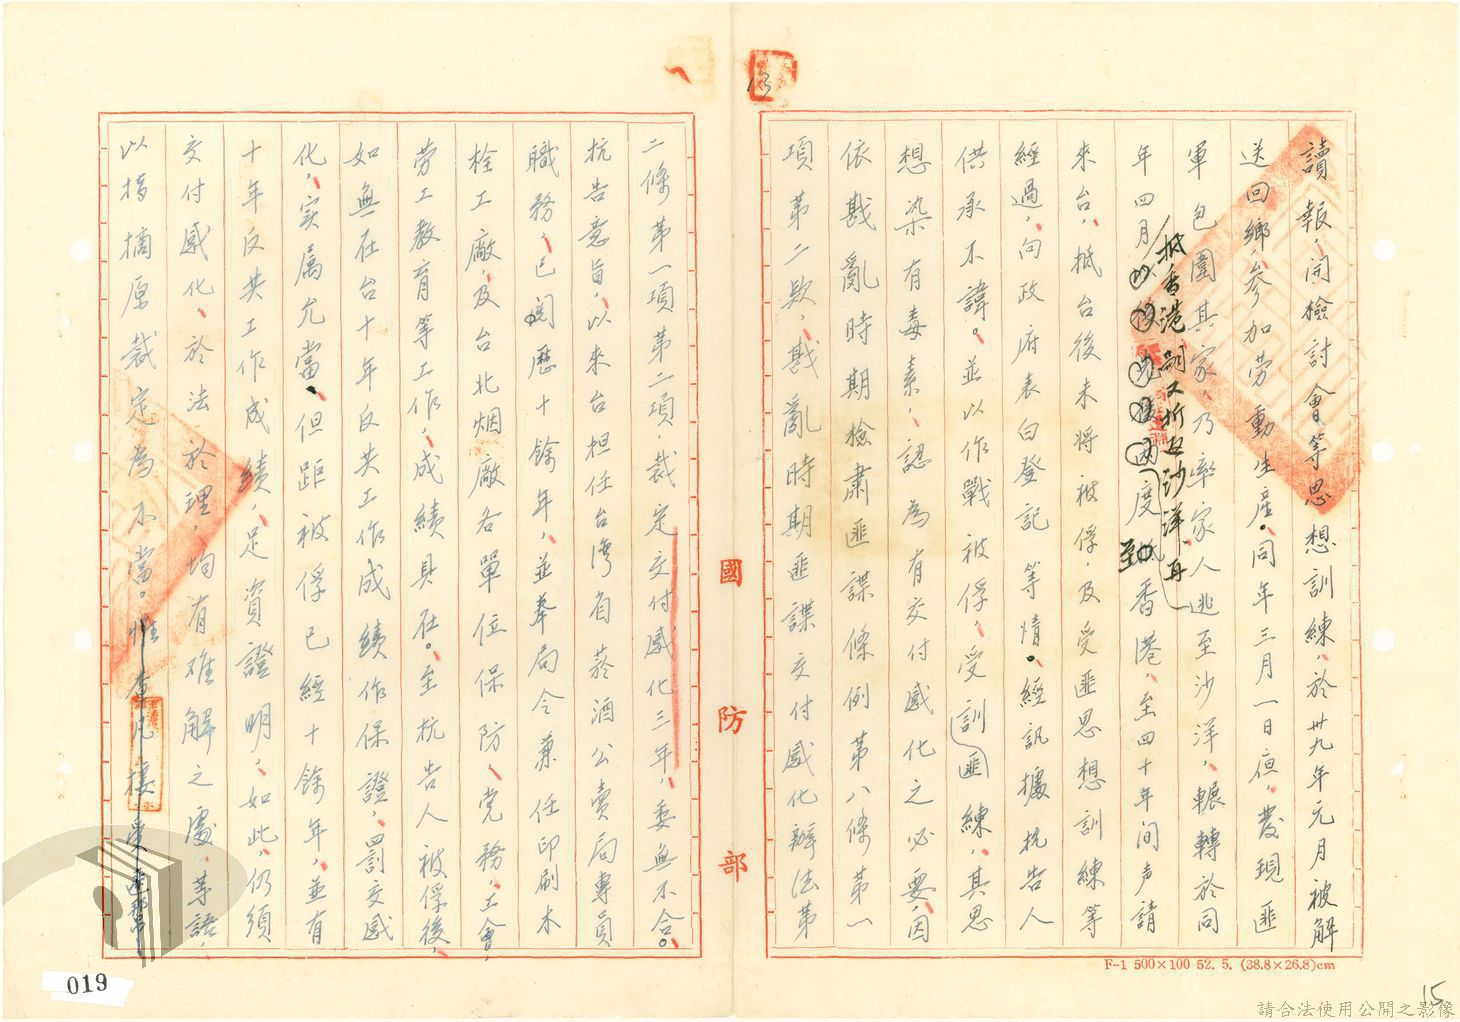 讀報，開檢討會等思想訓練，於卅九年元月被解
送回鄉，參加劳動生產。同年三月一日夜，發現匪
軍包圍其家，乃率家人逃至沙洋，輾轉於同
年四月
抵香港，嗣又折返沙洋，再
度
至
香港，至四十年间声請
來台，抵台後未將被俘，及受匪思想訓練等
經過，向政府表白登記等情。經訊據抗告人
供承不諱。並以作戰被俘，受訓匪練，其思
想染有毒素，認為有交付感化之必要，因
依戡亂時期檢肅匪諜條例第八條第一
項第二款，戡亂時期匪諜交付感化辦法第
二條第一項第二項，裁定交付感化三年，委無不合。
抗告意旨，以來台担任台湾省菸酒公賣局專員
職務，已閱歷十餘年，並奉局令兼任印刷木
栓工廠，及台北烟廠各單位保防，党務，工會，
劳工教育等工作，成績具在。至抗告人被俘後，
如無在台十年反共工作成績作保證，罰交感
化，实属允當。但距被俘已經十餘年，並有
十年反共工作成績，足資證明，如此，仍須
交付感化，於法於理，均有难解之處，等語，
以指摘原裁定為不當。惟查
國防部
F-1 500×100 52. 5. (38.8×26.8)cm
13
15
019
請合法使用公開之影像